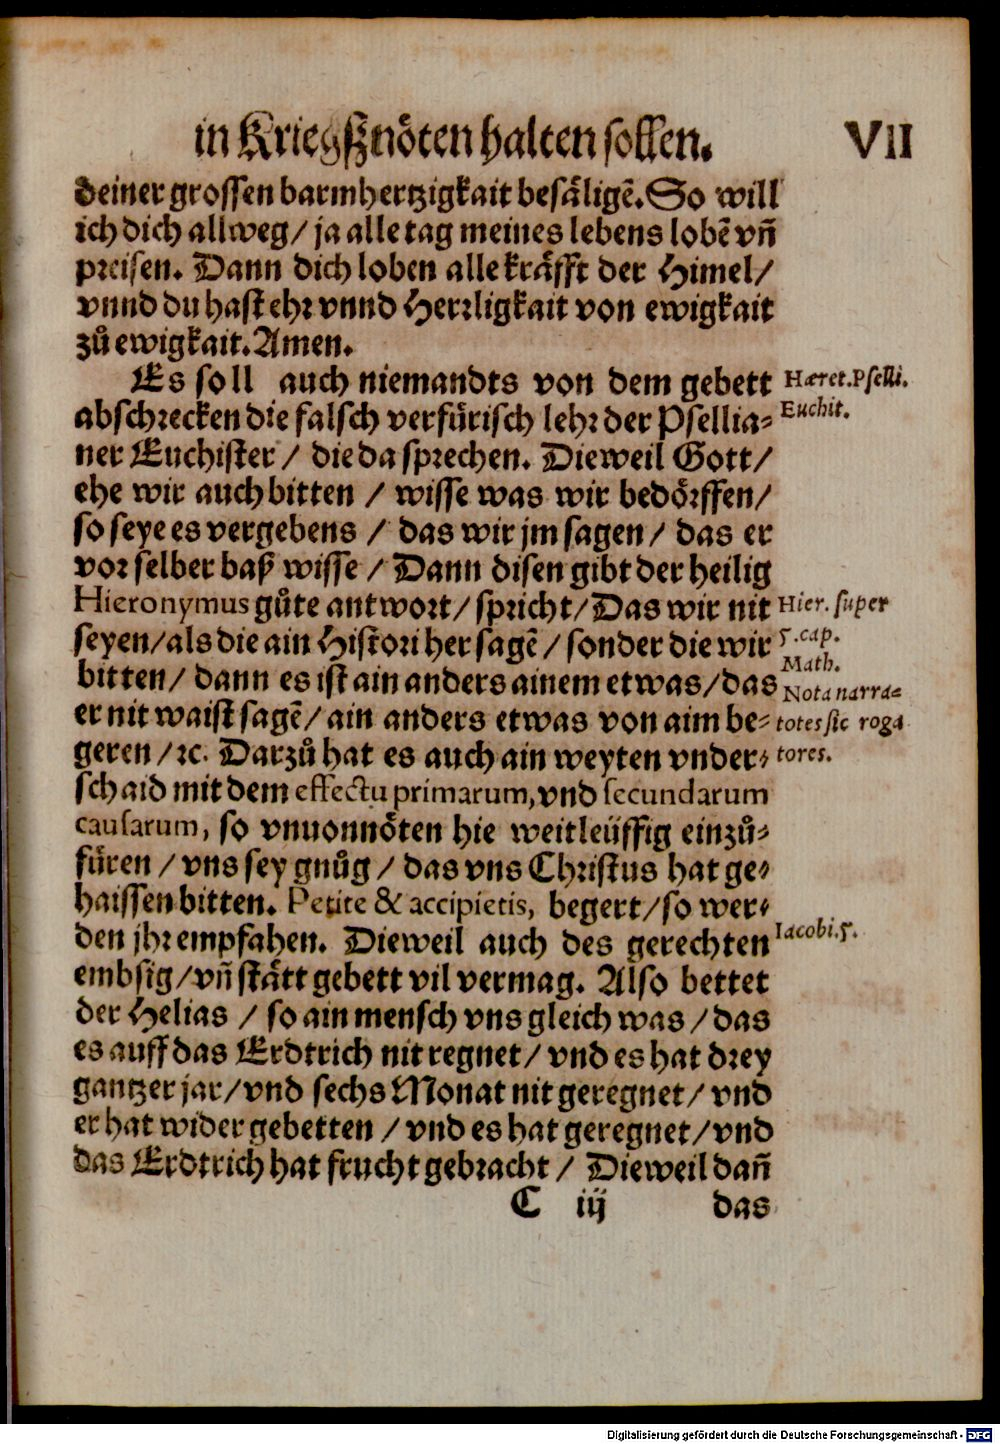 in Kriegßnöten halten sollen. VII
deiner grossen barmhertzigkait besäligē. So will
ich dich allweg / ja alle tag meines lebens lobē vñ
preisen. Dann dich loben alle kräfft der Himel /
vnnd du hast ehr vnnd Herrligkait von ewigkait
zů ewigkait. Amen.
Es soll auch niemandts von dem gebett
abschrecken die falsch verfürisch lehr der Psellia⸗
ner Euchister / die da sprechen. Dieweil Gott /
ehe wir auch bitten / wisse was wir bedörffen /
so seye es vergebens / das wir jm sagen / das er
vor selber baß wisse / Dann disen gibt der heilig
Hieronymus gůte antwort / spricht / Das wir nit
seyen / als die ain Histori her sagē / sonder die wir
bitten / dann es ist ain anders ainem etwas / das
er nit waist sagē / ain anders etwas von aim be⸗
geren / ꝛc. Darzů hat es auch ain weyten vnder⸗
schaid mit dem effectu primarum, vnd secundarum
causarum, so vnuonnöten hie weitleüffig einzů⸗
füren / vns sey gnůg / das vns Christus hat ge⸗
haissen bitten. Petite & accipietis, begert / so wer⸗
den jhr empfahen. Dieweil auch des gerechten
embsig / vñ stätt gebett vil vermag. Also bettet
der Helias / so ain mensch vns gleich was / das
es auff das Erdtrich nit regnet / vnd es hat drey
gantzer jar / vnd sechs Monat nit geregnet / vnd
er hat wider gebetten / vnd es hat geregnet / vnd
das Erdtrich hat frucht gebracht / Dieweil dañ
C iij das
Hæret. Pselli.
Euchit.
Hier. super
5. cap.
Math.
Nota narra⸗
totes sic roga
tores.
Iacobi. 5.
Digitalisierung gefördert durch die Deutsche Forschungsgemeinschaft - DFG